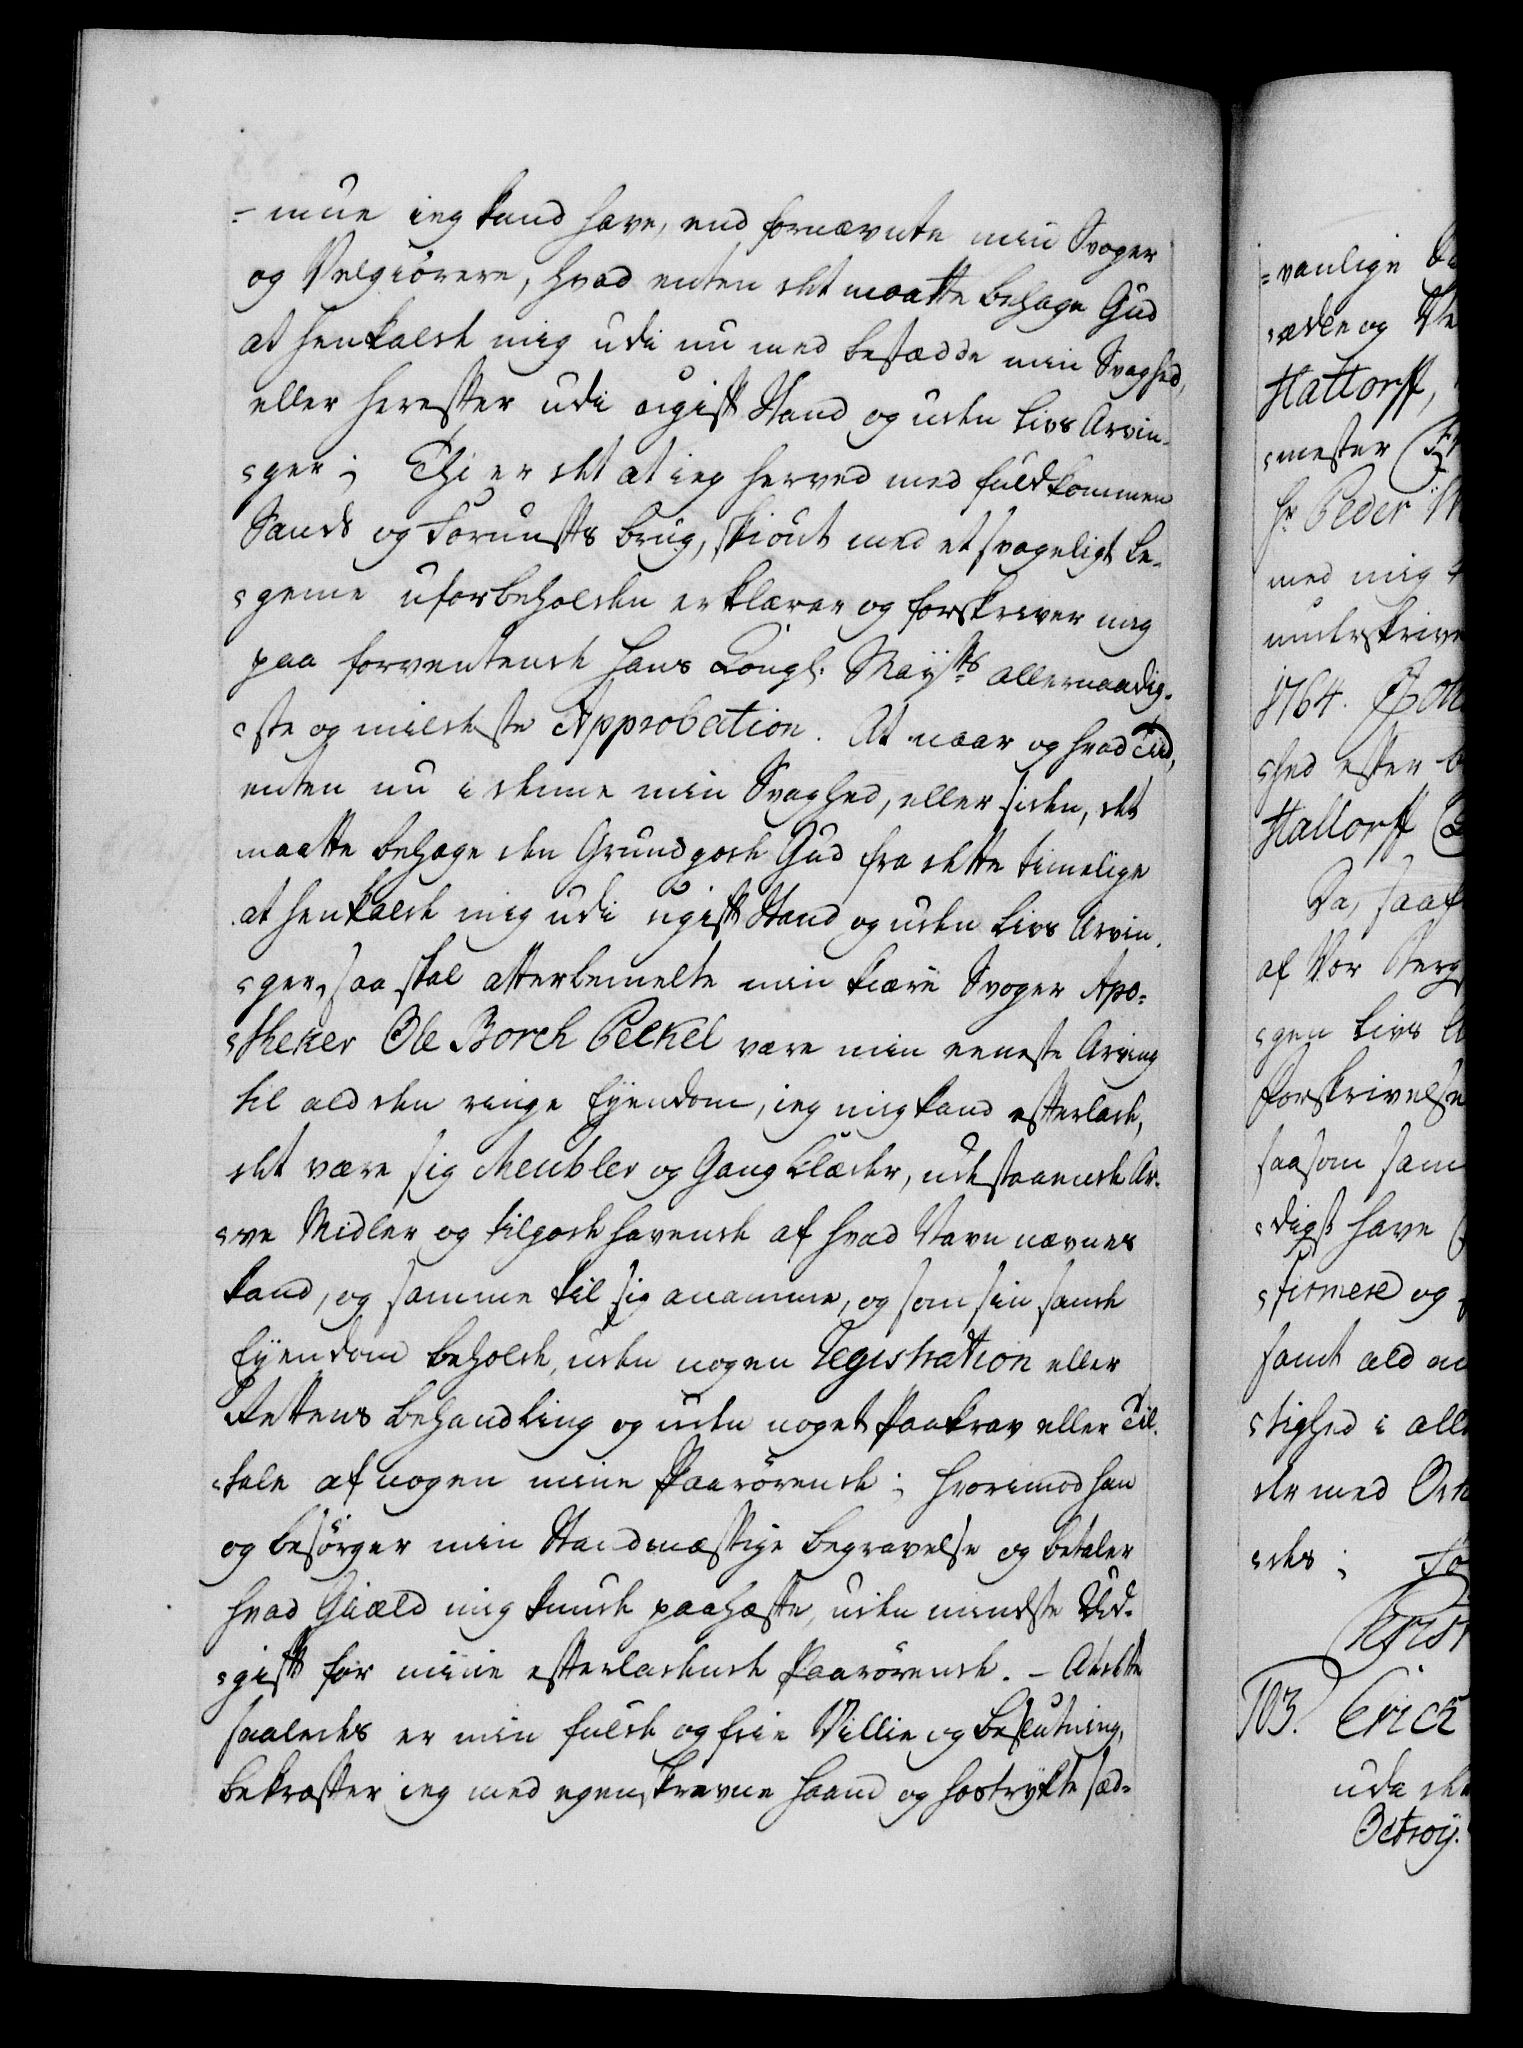 =mue ieg kand have, end fornævnte min Svoger
og Velgiørere, hvad enten det maatte behage Gud
at henkalde mig udi nu med behæftede min Svaghed,
eller herefter udi ugift Stand og uden Livs Arvin-
=ger; Thi er det at ieg herved med fuldkommen
Sands og Fornufts brug, skiønt med et svageligt Le-
=geme uforbeholden erklærer og forskriver mig
paa forventende Hans Kongl: May:ts allernaadig-
=ste og mildeste Approbation. At naar og hvad Tiid,
enten nu i denne min Svaghed, eller siden, det
maatte behage den Grundgode Gud fra dette timelige
at henkalde mig udi ugift Stand og uden Livs Arvin-
=ger, saa skal atterbemelte min kiære Svoger Apo-
=theker Ole Borch Peckel være min eeneste Arving
til ald den ringe Eyendom, ieg mig kand efterlade,
det være sig Meubler og Gang Klæder, udestaaende Ar-
=ve Midler og tilgode havende af hvad Navn nævnes
kand, og samme til sig anamme, og som sin sande
Eyendom beholde, uden nogen Registration eller
Rettens behandling og uden noget Paakrav eller Til-
=tale af nogen mine Paarørende; hvorimod han
og besørger min Standmæssige begravelse og betaler
hvad Giæld mig kunde paahæfte, uden mindste Ud-
=gift for mine efterladende Paarørende. - At dette
saaledes er min fulde og frie Villie og beslutning,
bekræfter ieg med egenskrevne Haand og hostrykte sæd-
=vanlige
=ædle og
Hattorff,
=mester
Hr Peder
med mig
underskrive
1764.
=hed efter
Hattorff
Da, saaf
af Vor
=gen Livs
forskrivelse
saasom sam
=digst have
=firmere og
samt ald
=tighed i alle
der med
=des;
103. Erick
udi
Octroy.